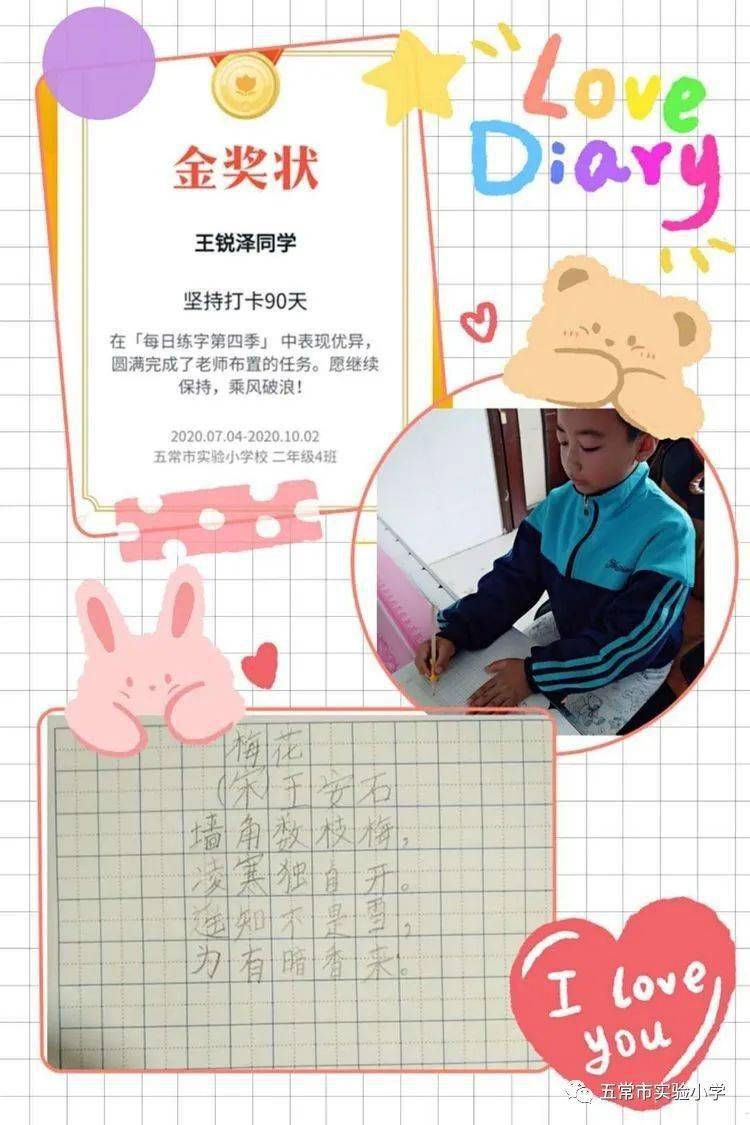 金奖状
王锐泽同学
坚持打卡90天
在「每日练字第四季」中表现优异，
圆满完成了老师布置的任务。愿继续
保持，乘风破浪！
2020.07.04-2020.10.02
五常市实验小学校 二年级4班
Love
Diary
梅花
(宋)王安石
墙角数枝梅，
凌寒独自开。
遥知不是雪，
为有暗香来。
I love
you
五常市实验小学